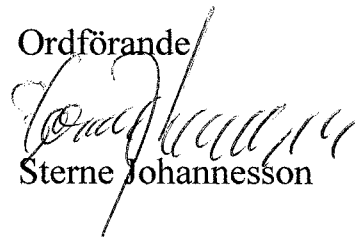 Ordförande
Sterne Johannesson